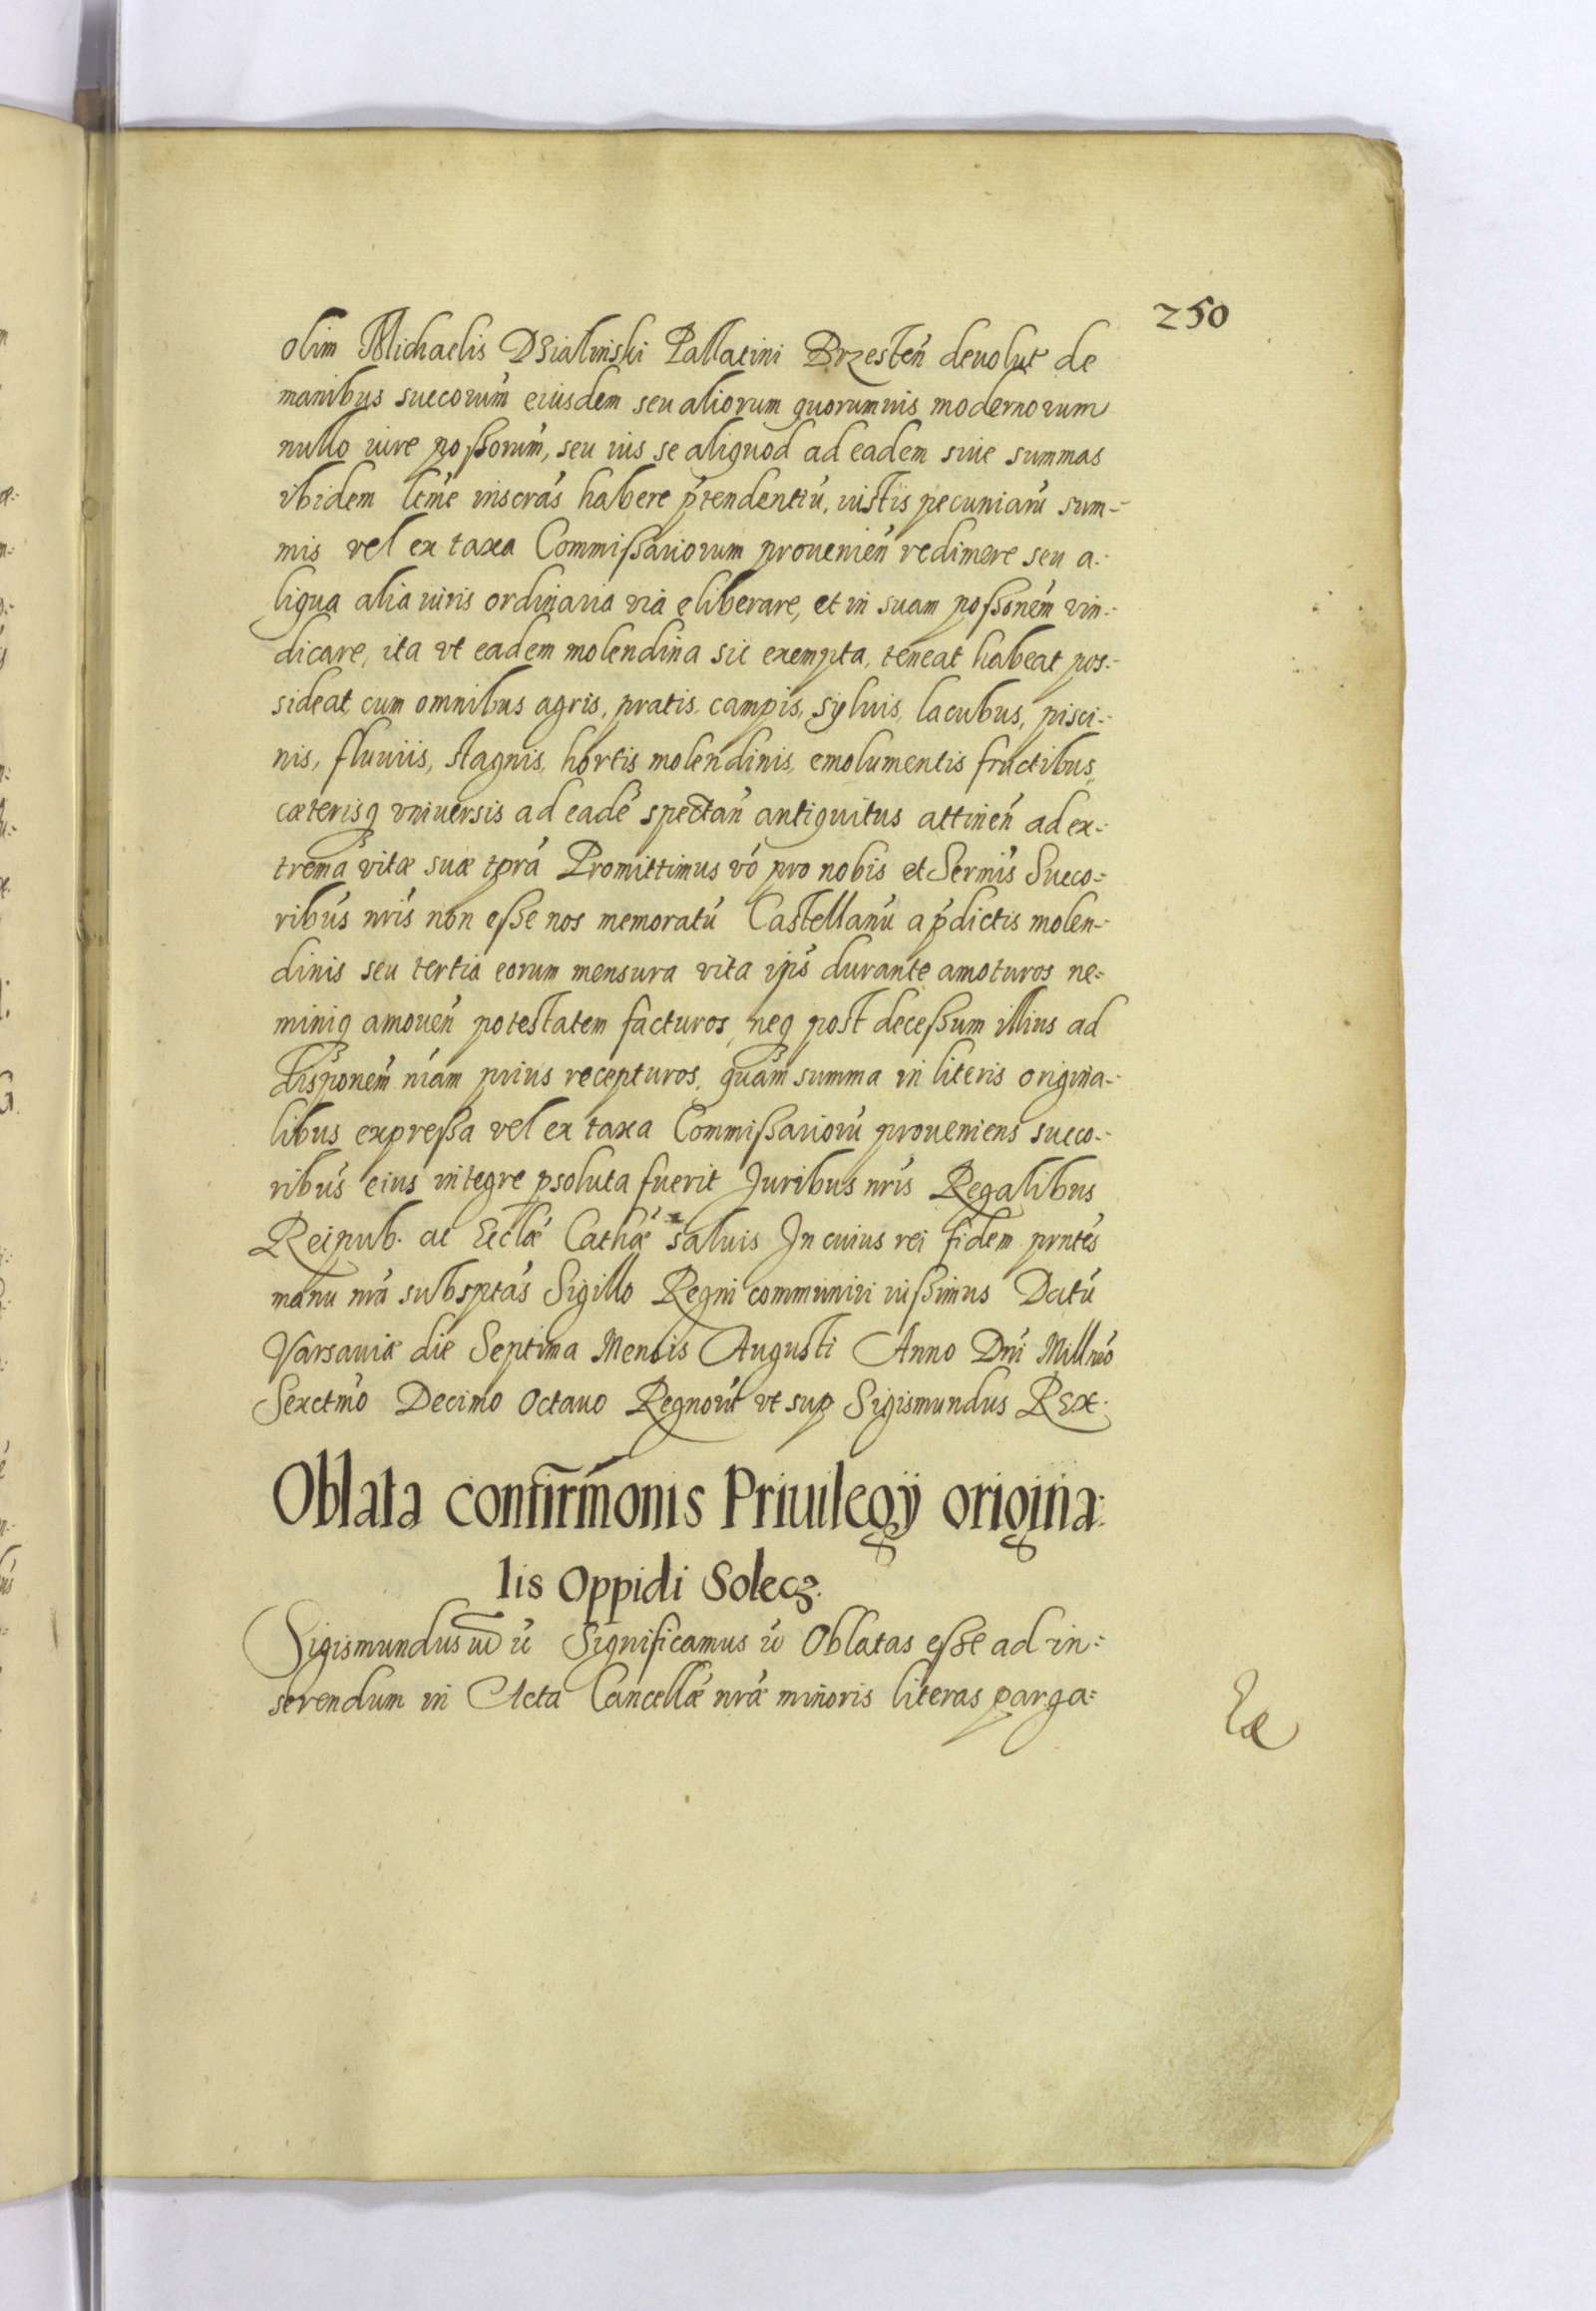 250
olim Michaelis Dzialinski Pallatini Brzesten̄ deuolut̄ de
manibus succorum̄ eiusdem seu aliorum quorumuis modernorum
nullo iure possorum̄, seu ius se aliquod ad eadem siue summas
ibidem ltm̄e inscras̄ habere p̄tendentiū, iustis pecuniarū sum-
mis vel ex taxa Commissariorum prouenien̄ redimere seu a-
liqua alia iuris ordinaria via eliberare, et in suam possonem̄ vin-
dicare, ita vt eadem molendina sic exempta, teneat habeat pos-
sideat cum omnibus agris, pratis, campis, syluis, lacubus, pisci-
nis, fluuiis, stagnis, hortis molendinis, emolumentis fructibus,
cæterisq₃ vniuersis ad eadē spectan̄ antiquitus attinen̄ ad ex-
trema vitæ suæ tp̄ra Promittimus vō pro nobis et Sermis̄ Succo-
ribus̄ nris̄ non esse nos memoratū Castellanū a p̄dictis molen-
dinis seu tertia eorum mensura vita ip̄s durante amoturos ne-
miniq₃ amouen̄ potestatem facturos, neq₃ post decessum illius ad
disponem̄ nr̄am prius recepturos, quam summa in literis origina-
libus expressa vel ex taxa Commissariorū proueniens succo-
ribus̄ eius integre psoluta fuerit Juribus nris̄ Regalibus
Reipub. ac Eccl̄æ Cathǣ saluis In cuius rei fidem prntēs
manu nrā subsptas̄ Sigillo Regni communiri iussimus Datū
Varsauiæ die Septima Mensis Augusti Anno Dni̅ Millnīo
Sexctm̄o Decimo Octauo Regnorū vt sup Sigismundus Rex.
Oblata confirm̄onis Priuilegÿ origina-
lis Oppidi Solecz.
Sigismundus Significamus Oblatas esse ad in-
serendum in Acta Cancellǣ nrǣ minoris literas parga-